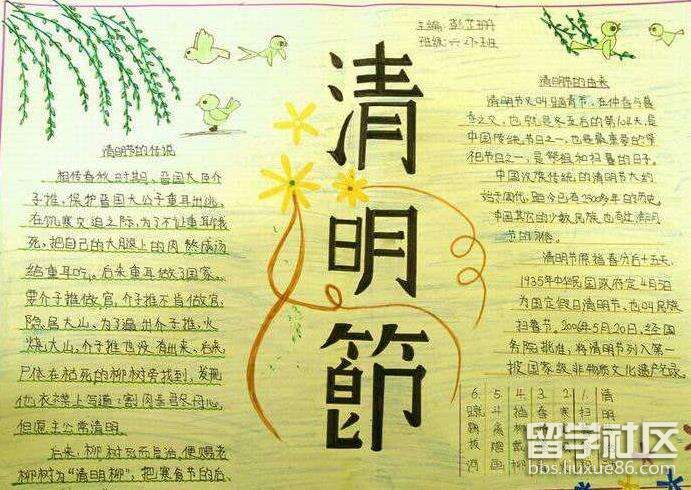 主编:彭芷珊
班级:六(3)班
清明節
清明节的传说
相传春秋时期、晋国大臣介
子推,保护晋国大公子重耳出逃
在饥寒交迫之际,为了不让重耳饿
死,把自己的大腿上的肉熬成汤
给重耳吃。后来重耳做了国家。
要介子推做官,介子推不肯做官,
隐居大山,为了逼出介子推,火
烧大山,介子推也没有出来、后来,
尸体在枯死的柳树旁找到,发现
他衣襟上写道:割肉奉君尽丹心,
但愿主公常清明。
后来,柳树死而复活,便赐老
柳树为“清明柳”,把寒食节的后、
清明节的由来
清明节又叫踏青节,在仲春与暮
春之交,也就是冬至后的第108天,是
中国传统节日之一,也是最重要的祭
祀节日之一,是祭祖和扫墓的日子。
中国汉族传统的清明节大约
始于周代,距今已有2500多年的历史。
中国其它的少数民族也有过清明
节的习俗。
清明节原指春分后十五天,
1935年中华民国政府定4月5日
为国定假日清明节,也叫民族
扫墓节。2006年5月20日,经国
务院批准,将清明节列入第一
批国家级非物质文化遗产名录。
清明
1扫
2寒
3春
4插
5斗
6踏
留学社区
bbs.liuxue86.com